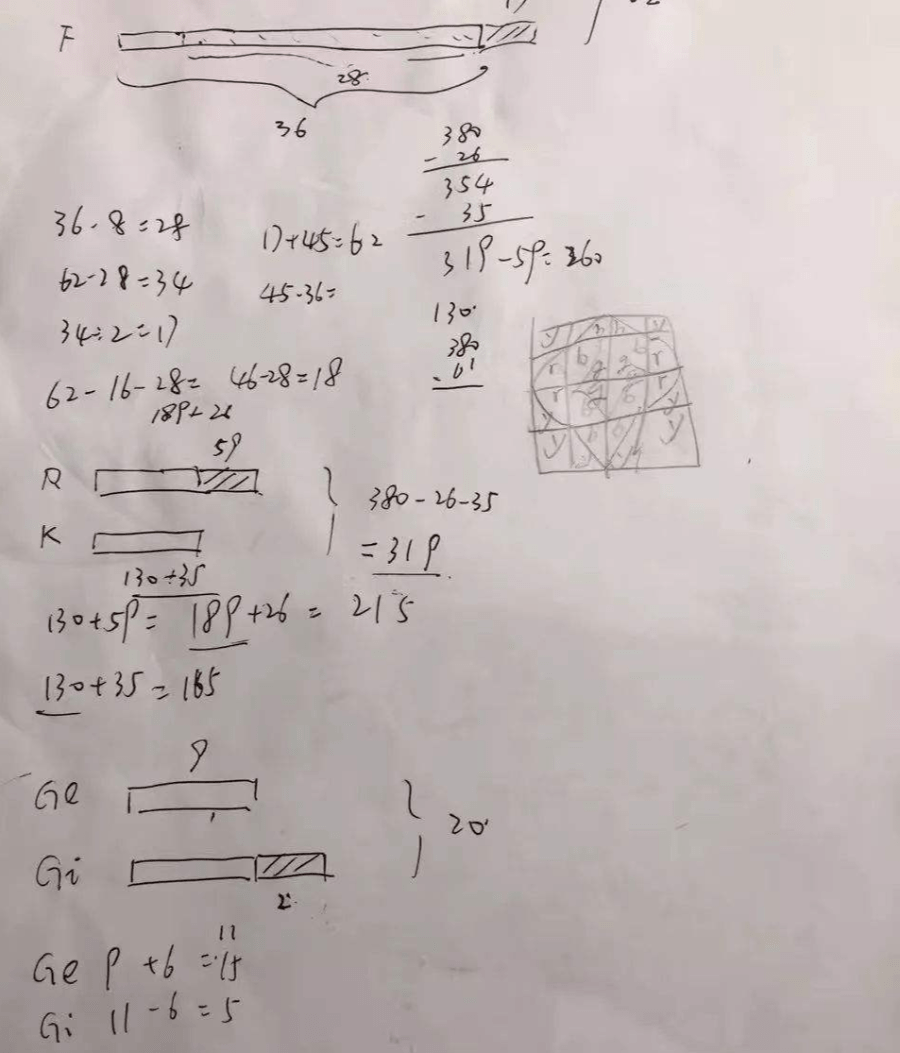 F
28
36
380
- 26
354
- 35
319-59=260
36-8=28
17+45=62
62-28=34
45-36=
34÷2=17
130
380
- 61
62-16-28= 46-28=18
189+26
59
R
K
380-26-35
=319
130+35
130+59= 189+26= 215
130+35=165
9
Ge
20
Gi
2
11
Ge 9+6=15
Gi 11-6=5
y y
r b g g b r
r b g g b r
y b b y
y y